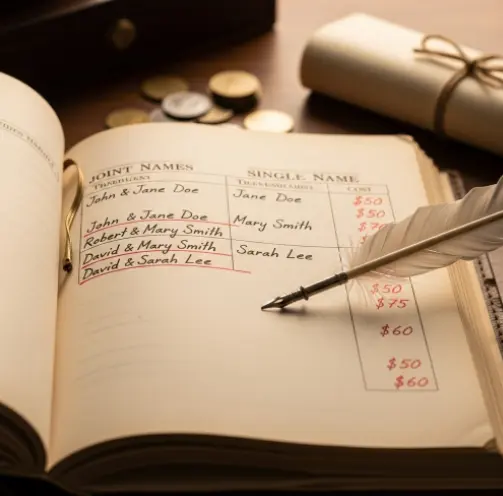 JOINT NAMES
SINGLE NAME
COST
John & Jane Doe
Jane Doe
$50
$50
John & Jane Doe
Mary Smith
Robert & Mary Smith
David & Mary Smith
Sarah Lee
David & Sarah Lee
$50
$75
$60
$50
$60